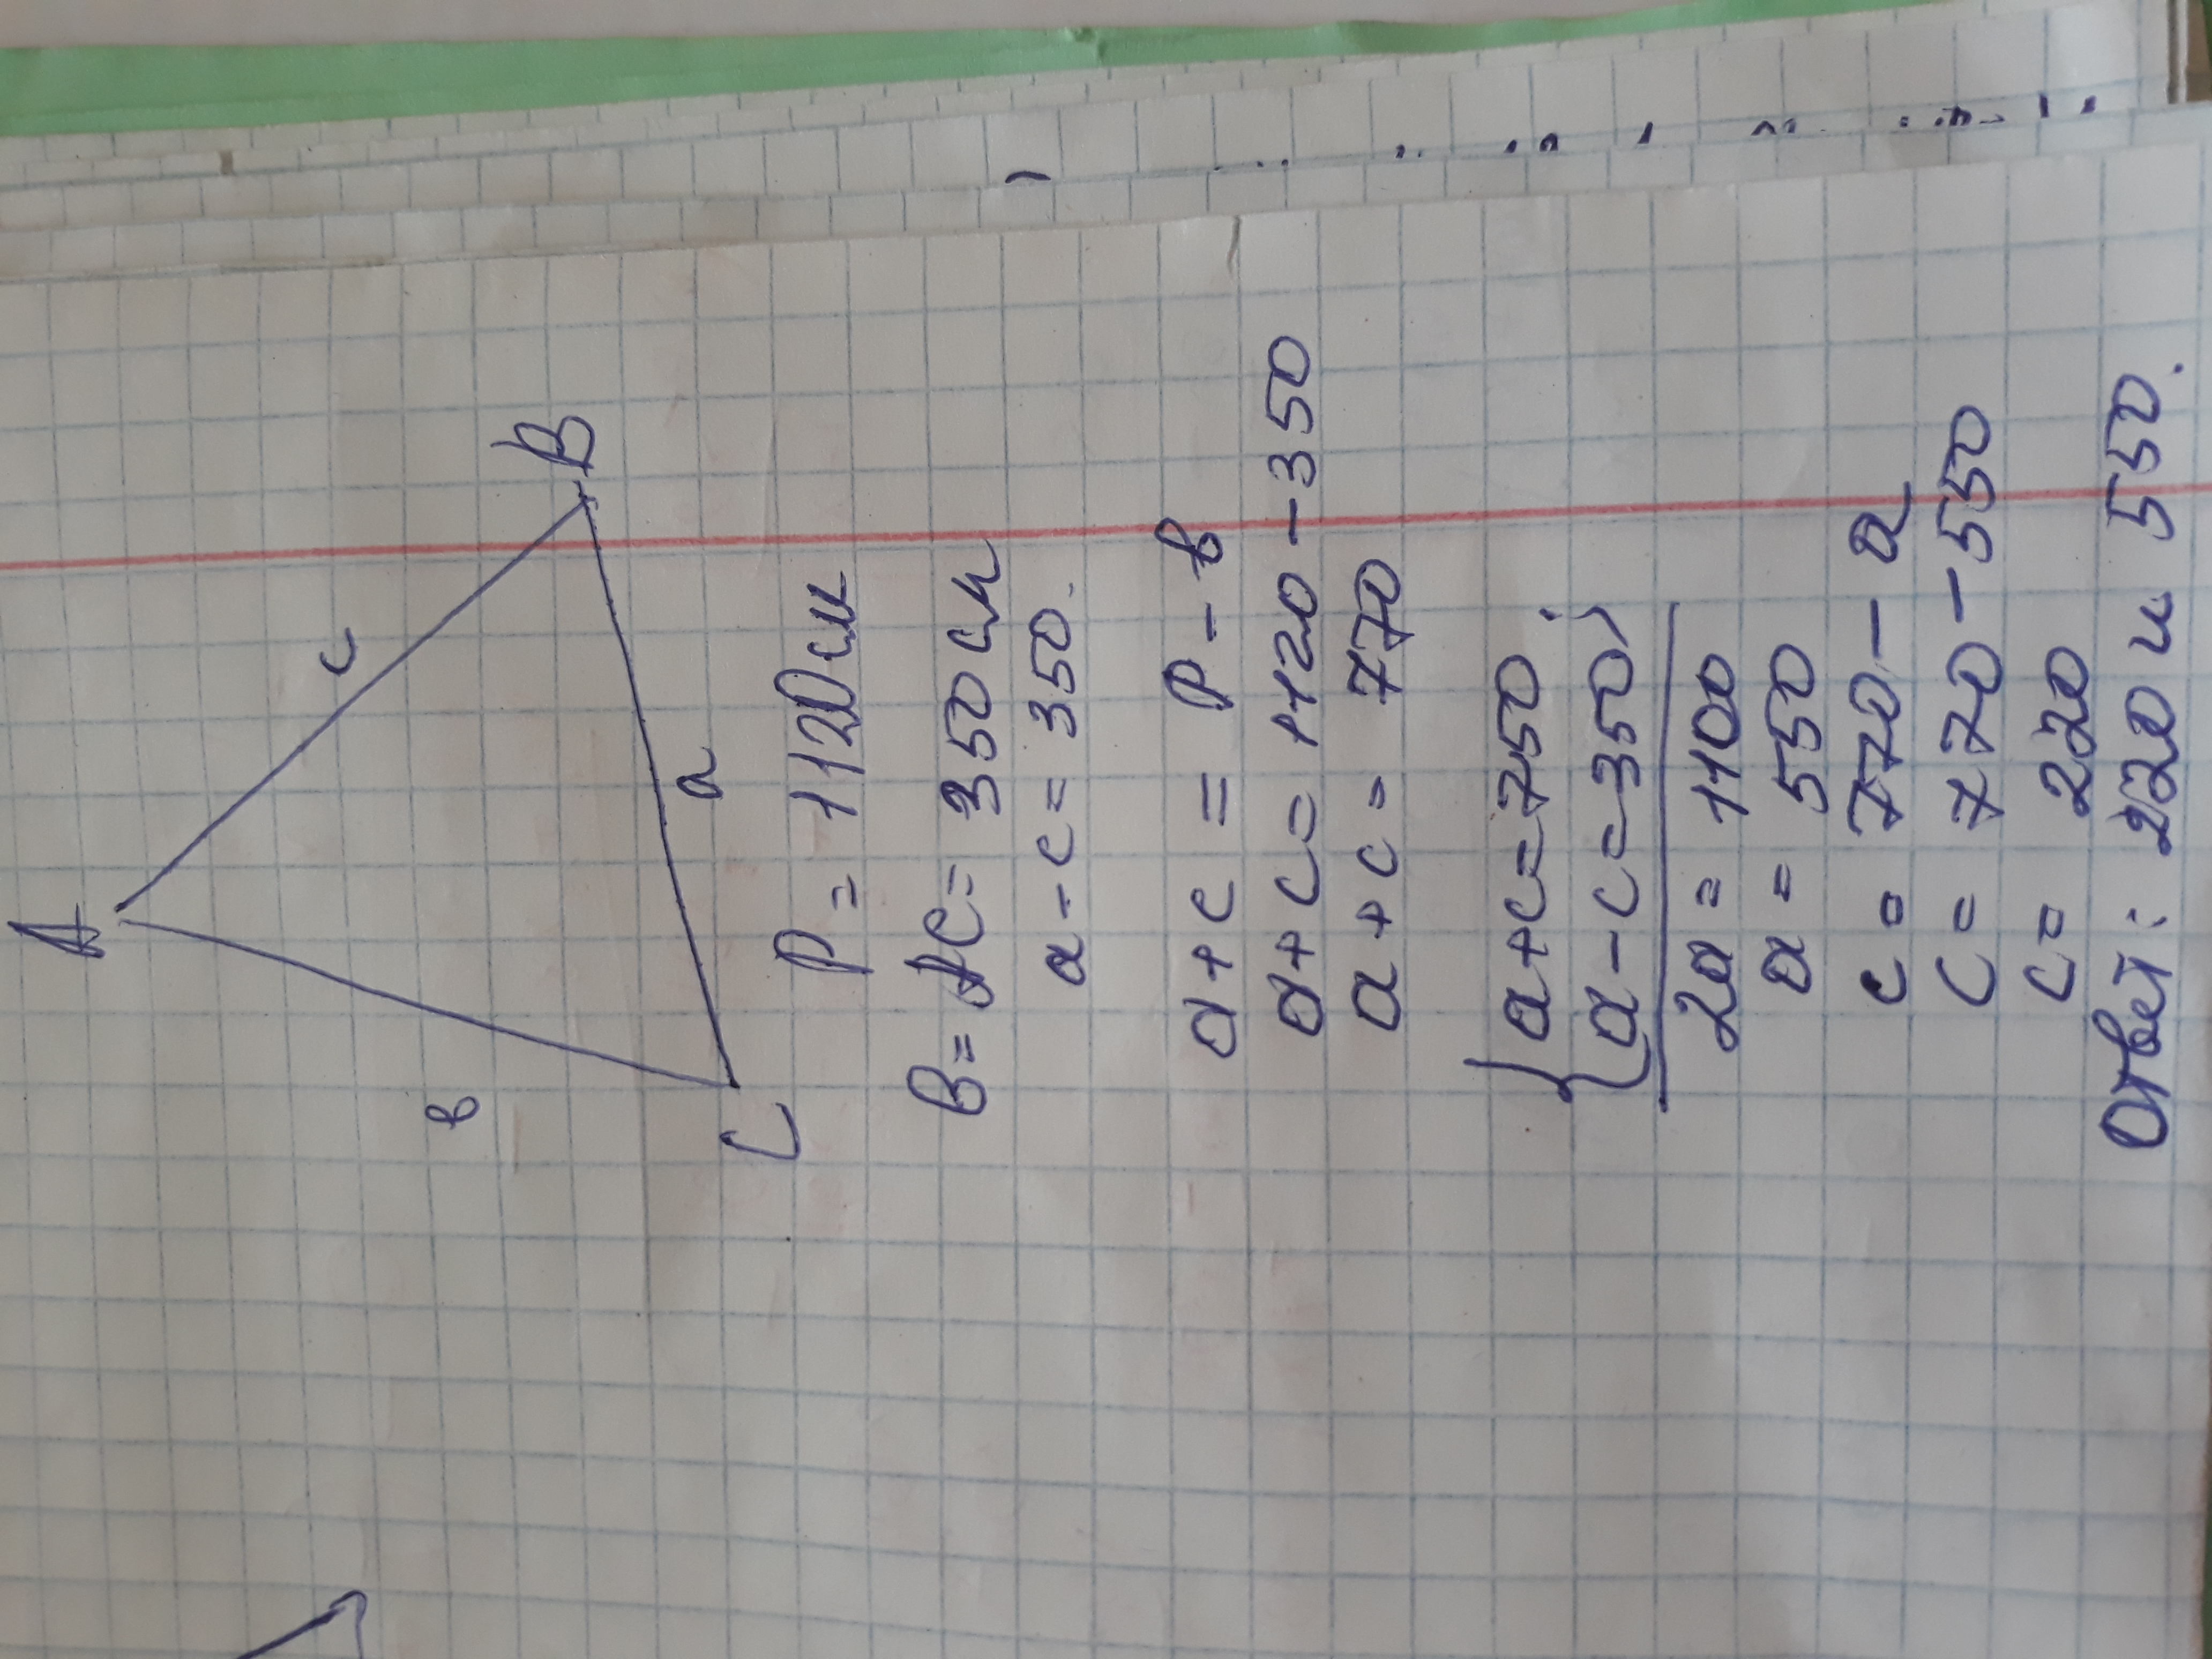 A
c
B
в
a
C
P = 1120 см
B = AC = 350 см
a - c = 350.
a + c = P - в
a + c = 1120 - 350
a + c = 770
{ a + c = 750 ;
{ a - c = 350 ;
2a = 1100
a = 550
c = 770 - a
c = 770 - 550
c = 220
Ответ: 220 и 550.